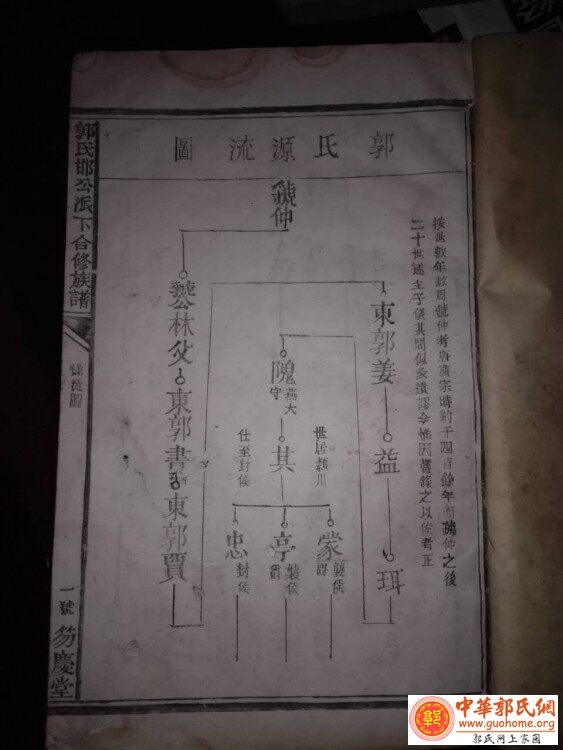 郭氏源流圖
按世數年敘周虢仲者唐肅宗時約千四百餘年而虢仲之後
二十世遂生子儀其間似有遺謬今惟因舊錄之以俟考正
虢仲
虢公林父
東郭書
東郭賈
東郭姜
益
珥
隗
燕大
守
其
世居潁川
仕至封侯
蒙
襲侯
爵
亭
襲侯
爵
忠
封侯
郭氏邯公派下合修族譜
源流圖
一號
笏慶堂
中華郭氏網
www.guohome.org
郭氏网上家园